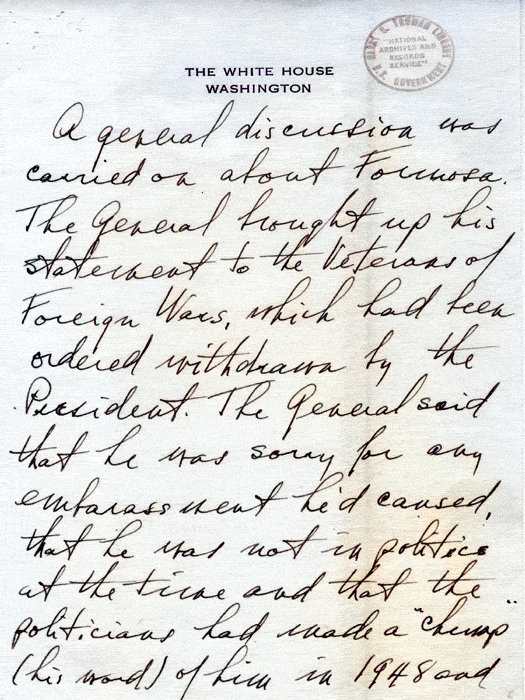 HARRY S. TRUMAN LIBRARY
"NATIONAL
ARCHIVES AND
RECORDS
SERVICE"
U.S. GOVERNMENT
THE WHITE HOUSE
WASHINGTON
A general discussion was
carried on about Formosa.
The General brought up his
statement to the Veterans of
Foreign Wars, which had been
ordered withdrawn by the
President. The General said
that he was sorry for any
embarassment he'd caused,
that he was not in politics
at the time and that the
politicians had made a "chump"
(his word) of him in 1948 and